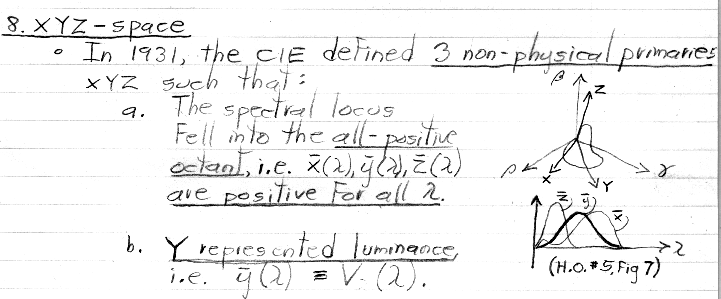 8. XYZ-space
• In 1931, the CIE defined 3 non-physical primaries
XYZ such that:
a. The spectral locus
Fell into the all-positive
octant, i.e. x̄(λ), ȳ(λ), z̄(λ)
are positive For all λ.
b. Y represented luminance,
i.e. ȳ(λ) ≡ V(λ).
β
Z
ρ
X
Y
γ
z̄
ȳ
x̄
λ
(H.O.#5, Fig 7)